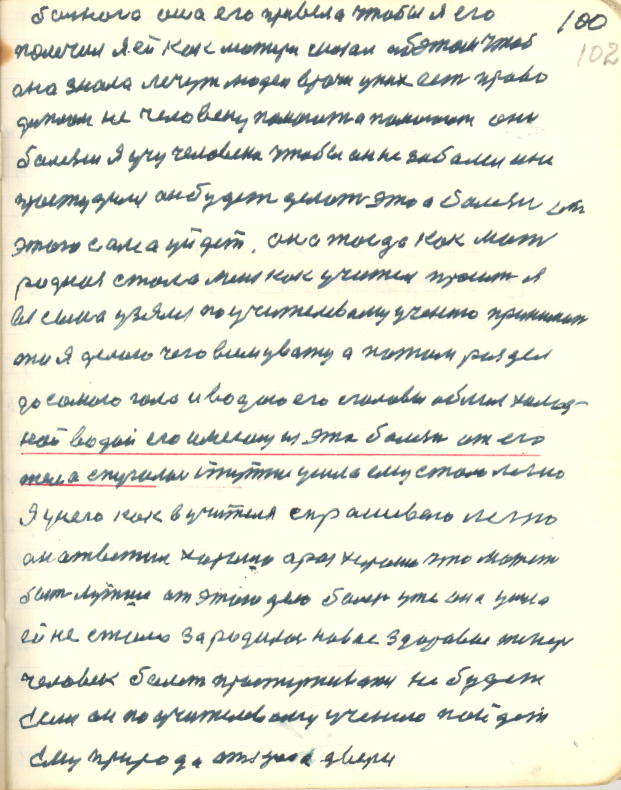 100
102
больного она его привела чтобы я его
полечил я ей как матери сказал об этом чтоб
она знала лечут людей врачи у них ест право
диплом не человеку помогат а помогают они
болезни я учу человека чтобы он не заболел и не
простудился он будет делат это а болезн от
этого сама уйдет. она тогда как мат
родная стала меня как учителя просит я
ее сына узялся по учителевому учению принимат
то я делаю чего ему а потом раздел
до самого гола и водою его с головы облил холод-
ной водой его и эта болезн от его
тела спугалас и тутже ушла ему стало легко
я у него как в учителя спрашеваю легко
он ответил хорошо а раз хорошо что может
быт лутше от этого дело болезн уже она ушла
ей не стало зародилос новое здоровье типер
человек болет простуживатся не будет
Если он по учителевому учению пойдет
Ему природа двери